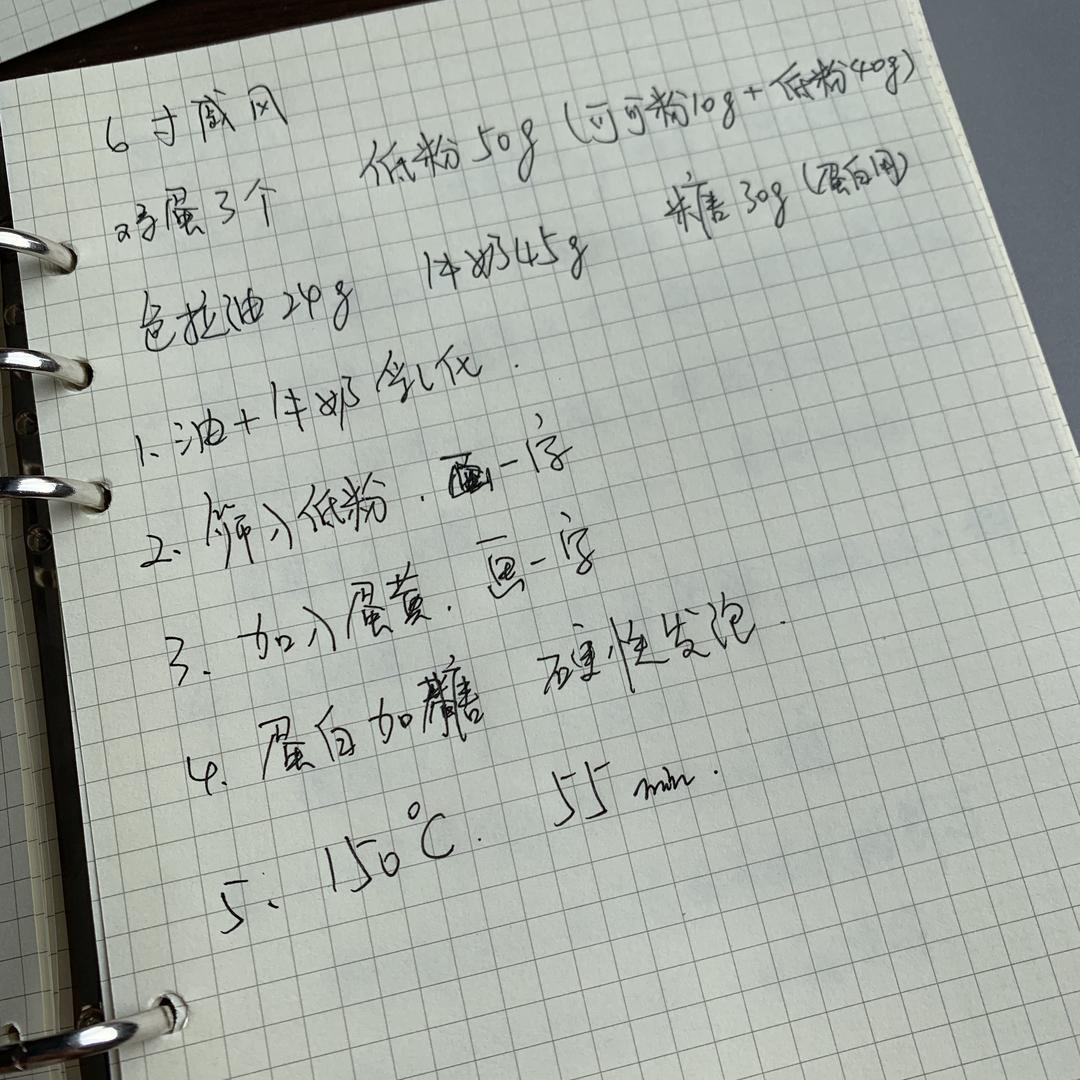 6寸戚风
鸡蛋3个 低粉50g (可可粉10g+低粉40g)
色拉油24g 牛奶45g 糖30g (蛋白用)
1、油+牛奶乳化.
2、筛入低粉.画一字
3、加入蛋黄.画一字
4、蛋白加糖 硬性发泡.
5、150℃. 55min.